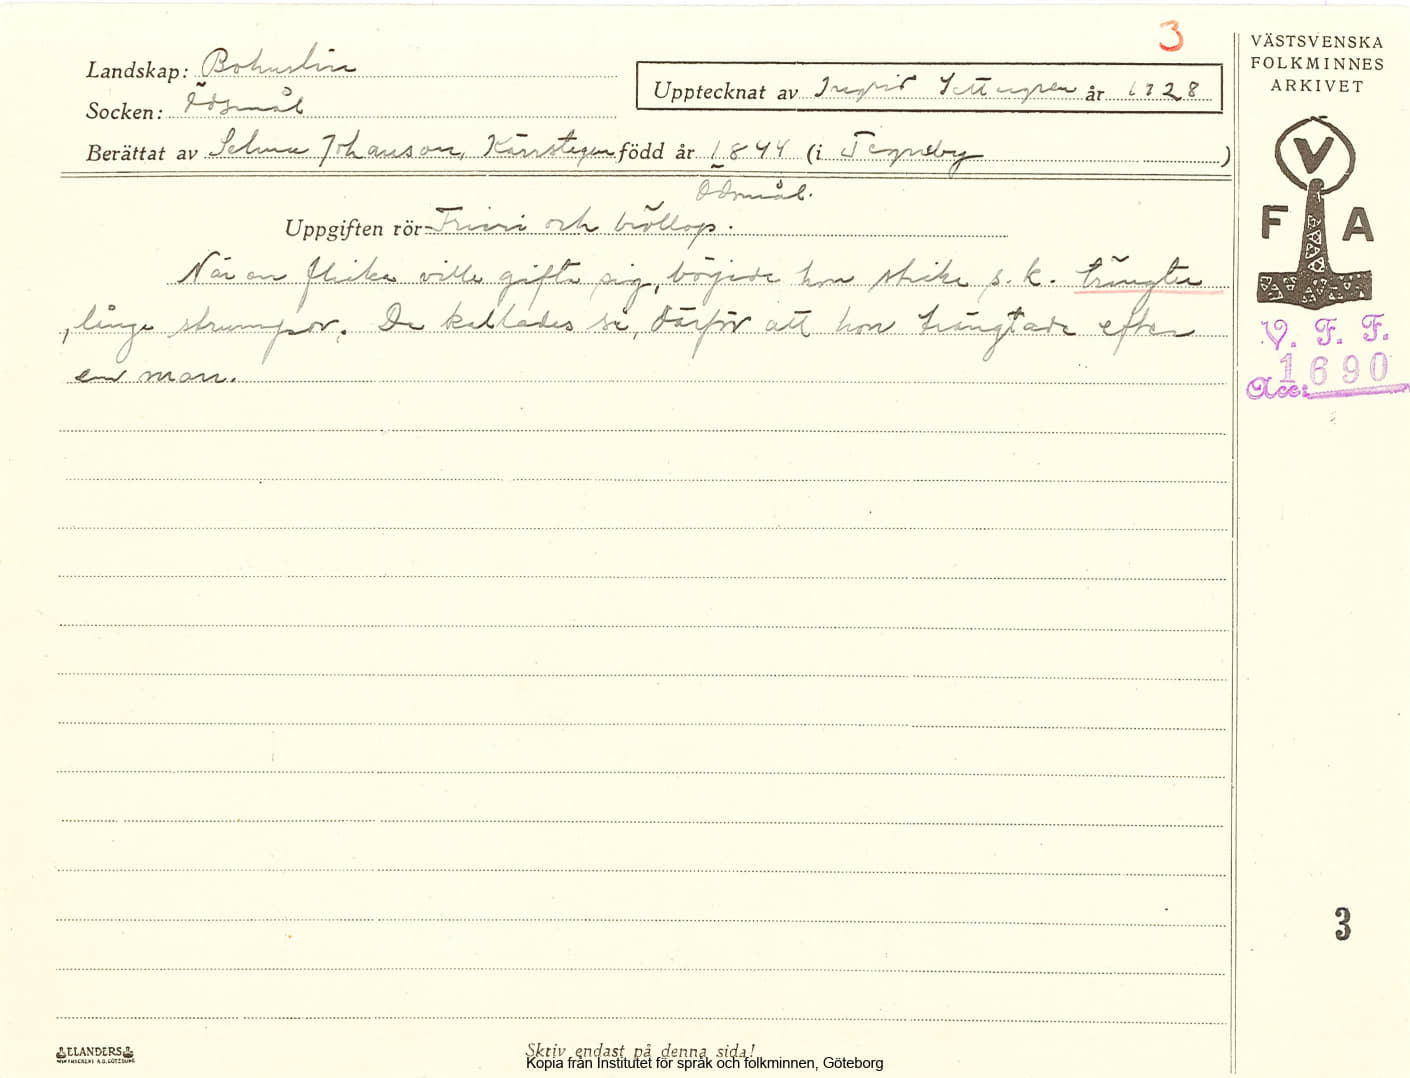 3
VÄSTSVENSKA
FOLKMINNES
ARKIVET
Landskap: Bohuslän
Upptecknat av Ingrid år 1928
Socken: Ödsmål
Berättat av Selma Johanson, Kärrstegen född år 1844 (i Tegneby )
Ödsmål.
Uppgiften rör Frieri och bröllop.
När en flicka ville gifta sig, började hon sticka s. k. trängta
långa strumpor. De kallades så, därför att hon trängtade efter
en man.
V
F A
V. F. F.
1690
Acc:
3
ELANDERS
Skriv endast på denna sida!
Kopia från Institutet för språk och folkminnen, Göteborg